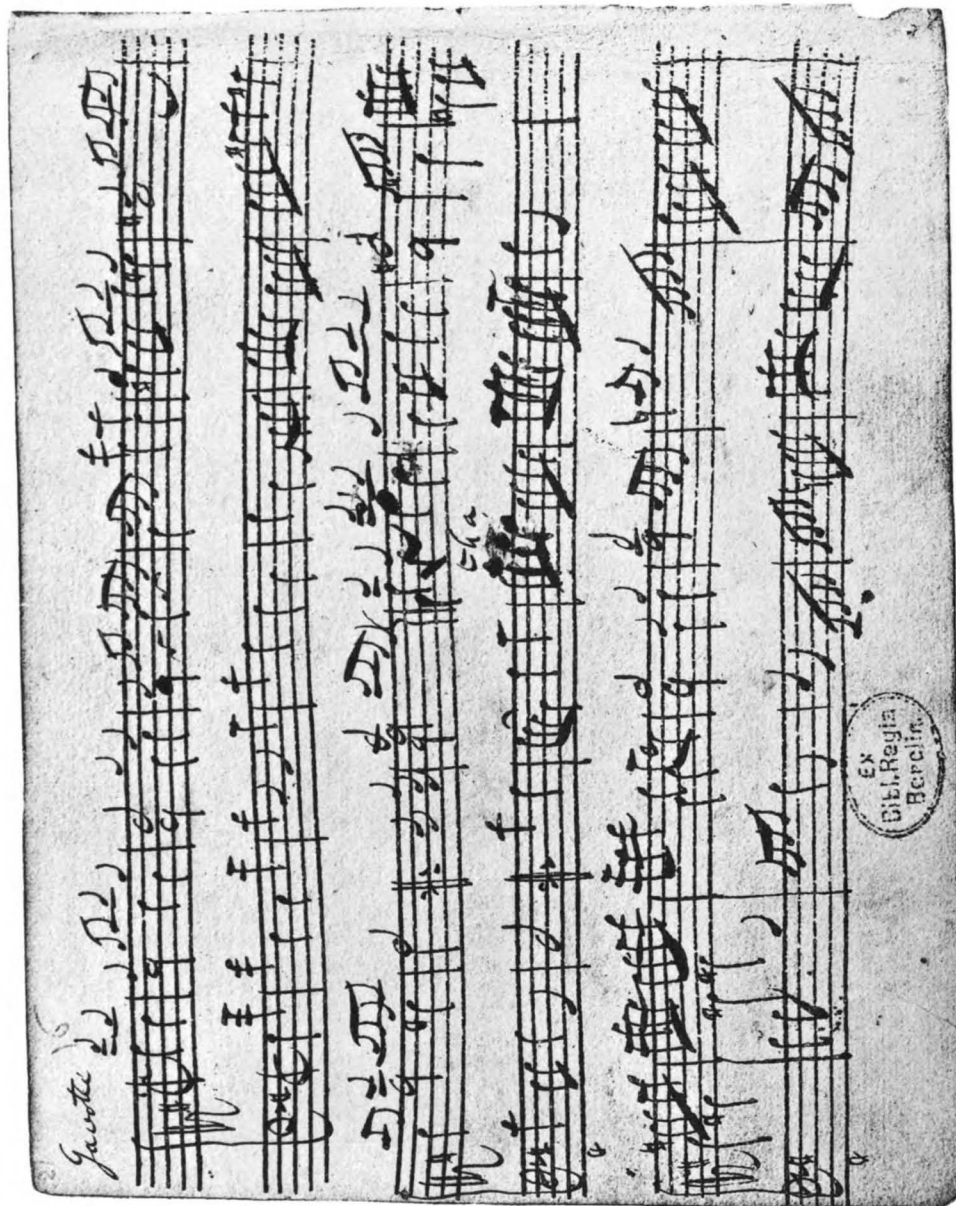 Gavotte
EX
Bibl. Regia
Berolin.